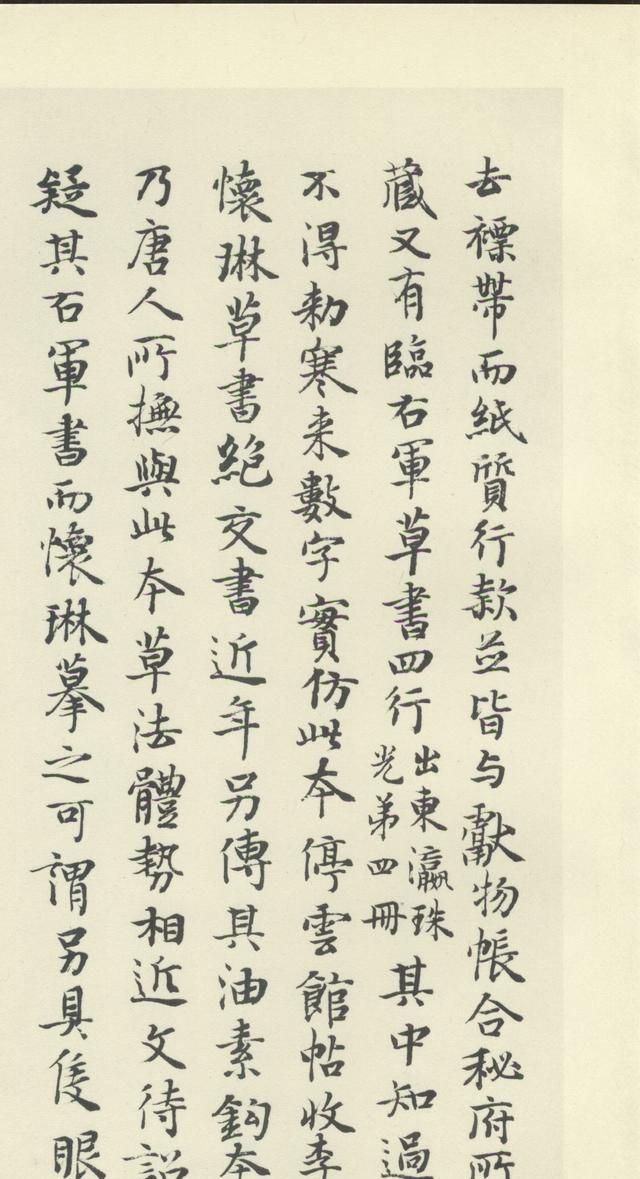 去褾帶而紙質行款並皆与獻物帳合秘府所
藏又有臨右軍草書四行出東瀛珠光第四冊其中知過
不得勑寒来數字實仿此本停雲館帖收李
懷琳草書絶交書近年另傳其油素鈎本
乃唐人所撫與此本草法體勢相近文待詔
疑其右軍書而懷琳摹之可謂另具隻眼